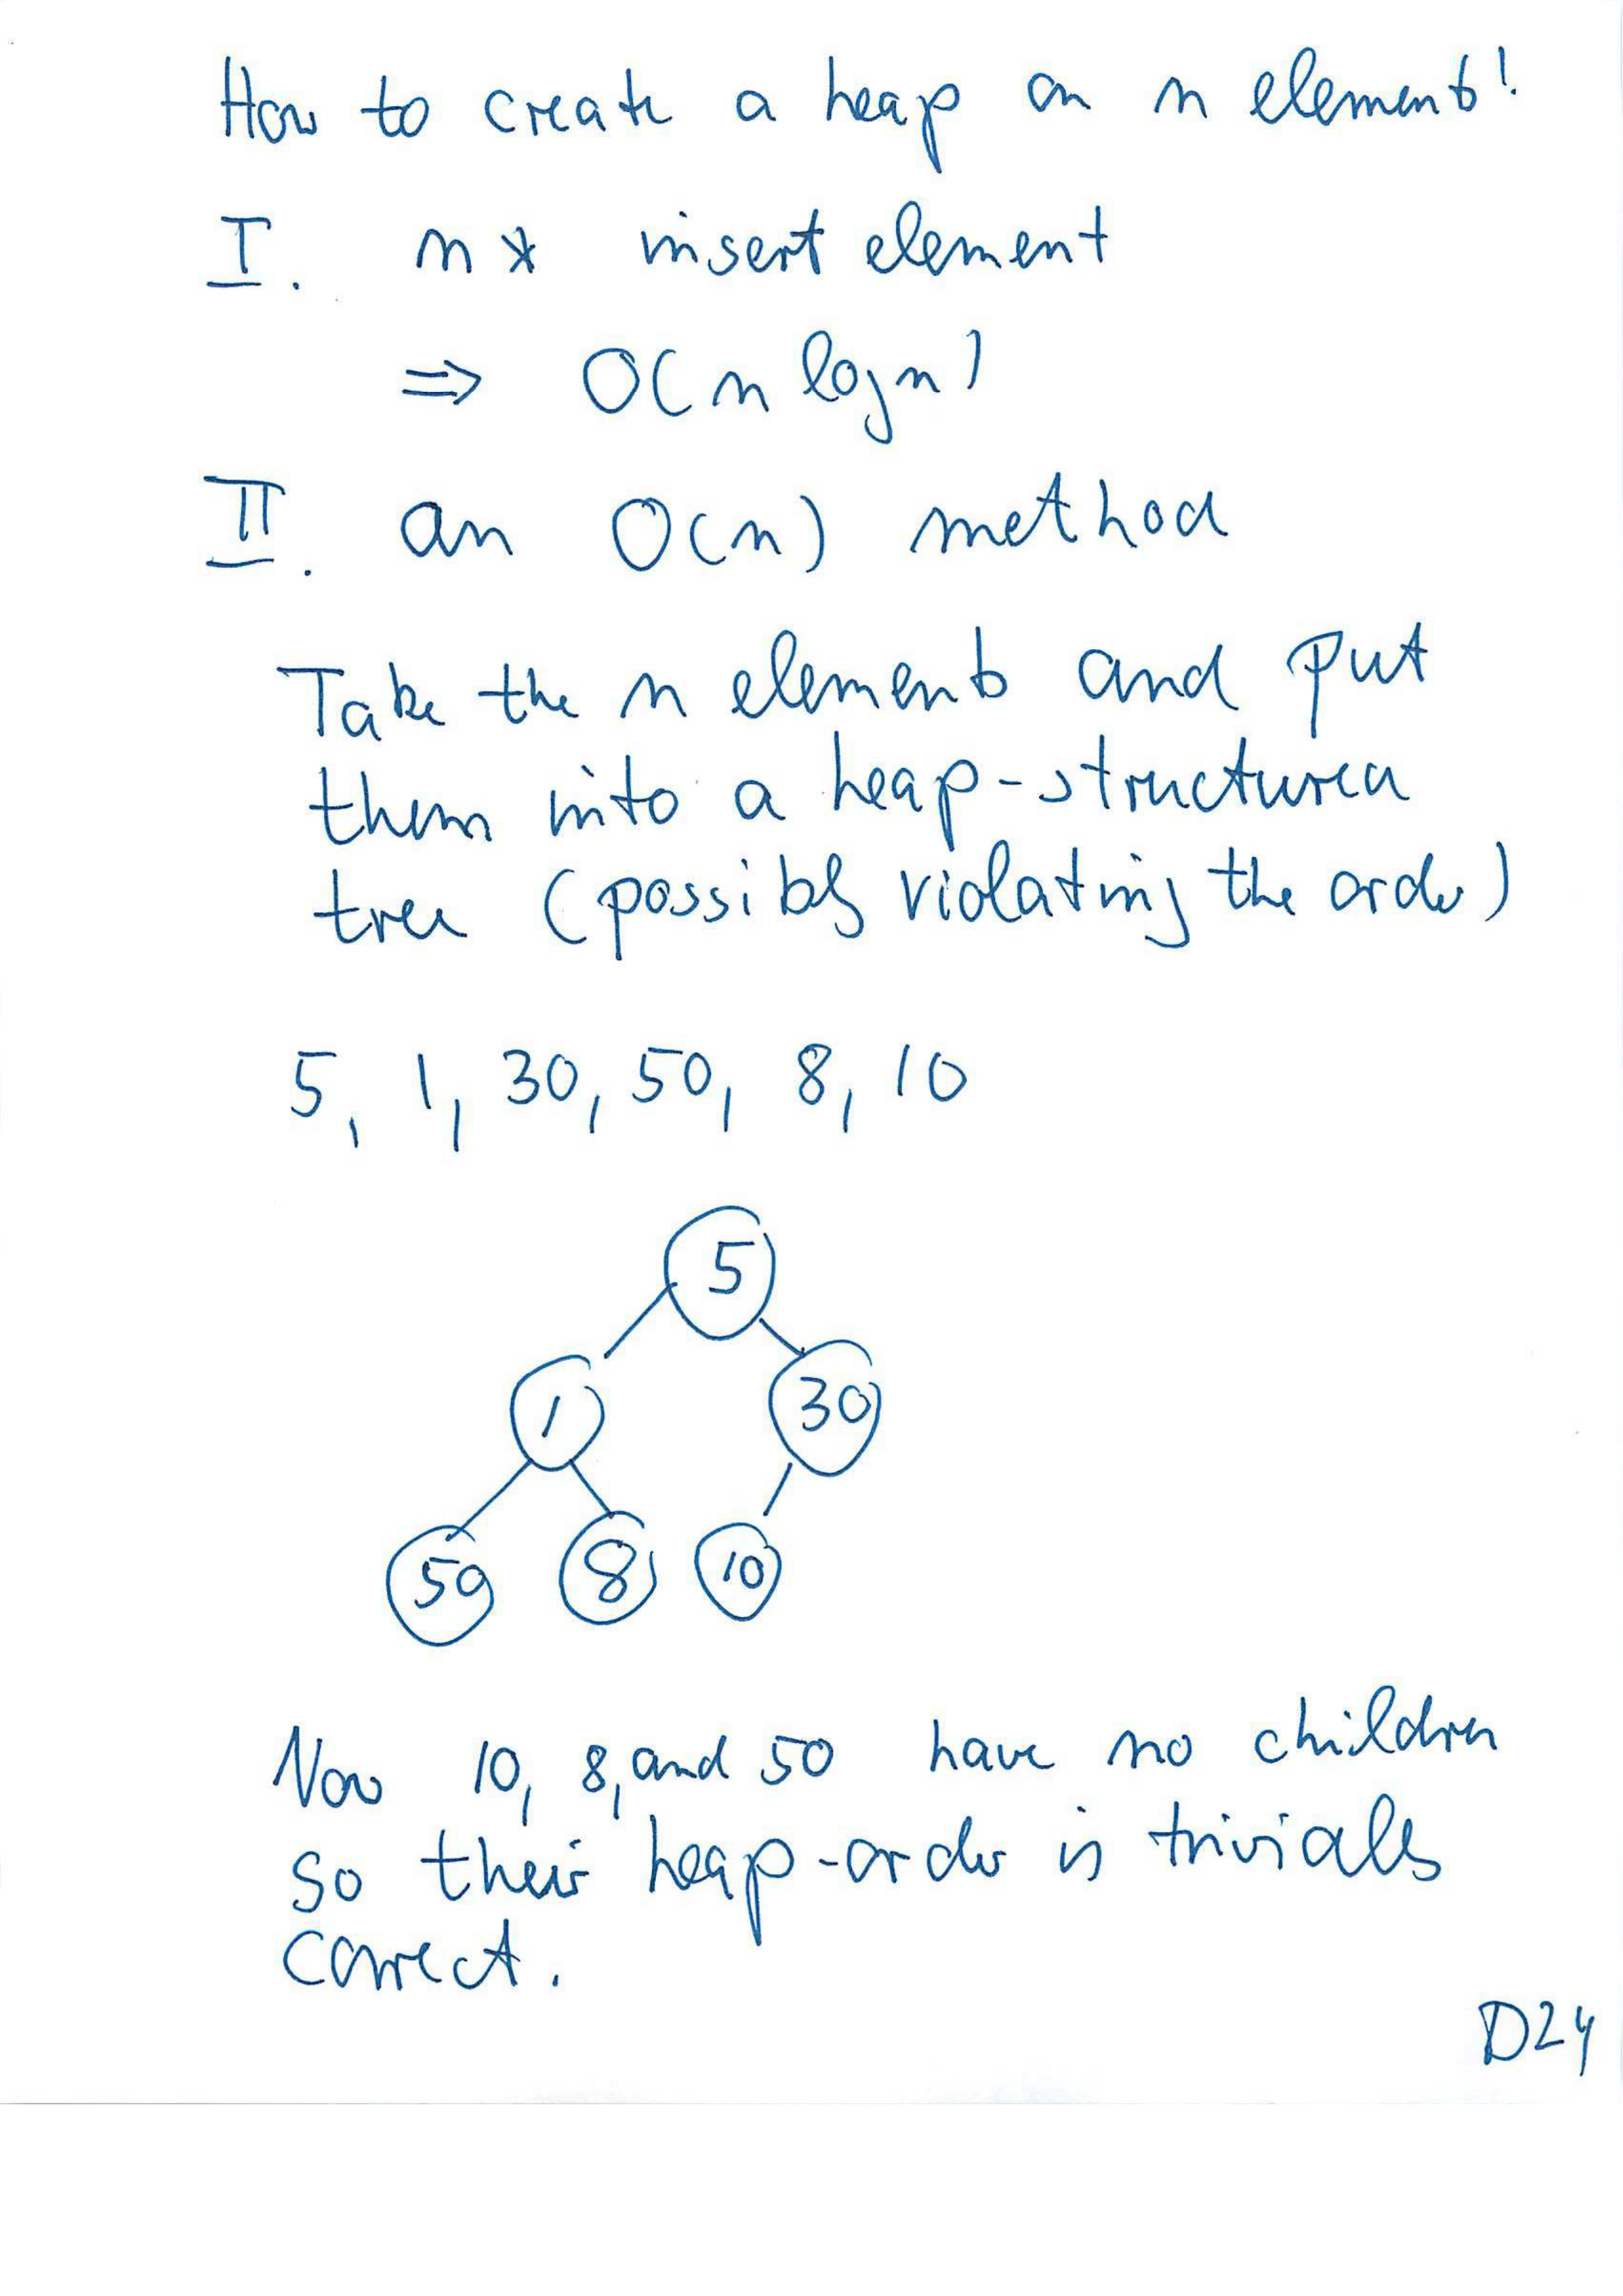 How to create a heap on n elements!
I. n * insert element
⇒ O(n log n)
II. an O(n) method
Take the n elements and put
them into a heap-structured
tree (possibly violating the order)
5, 1, 30, 50, 8, 10
5
1 30
50 8 10
Now 10, 8, and 50 have no children
so their heap-order is trivially
correct.
D24